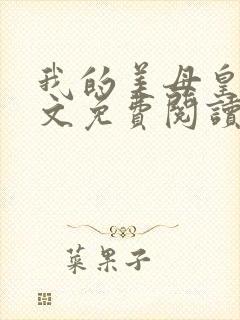 我的美母皇
文免費閱讀
葉果子